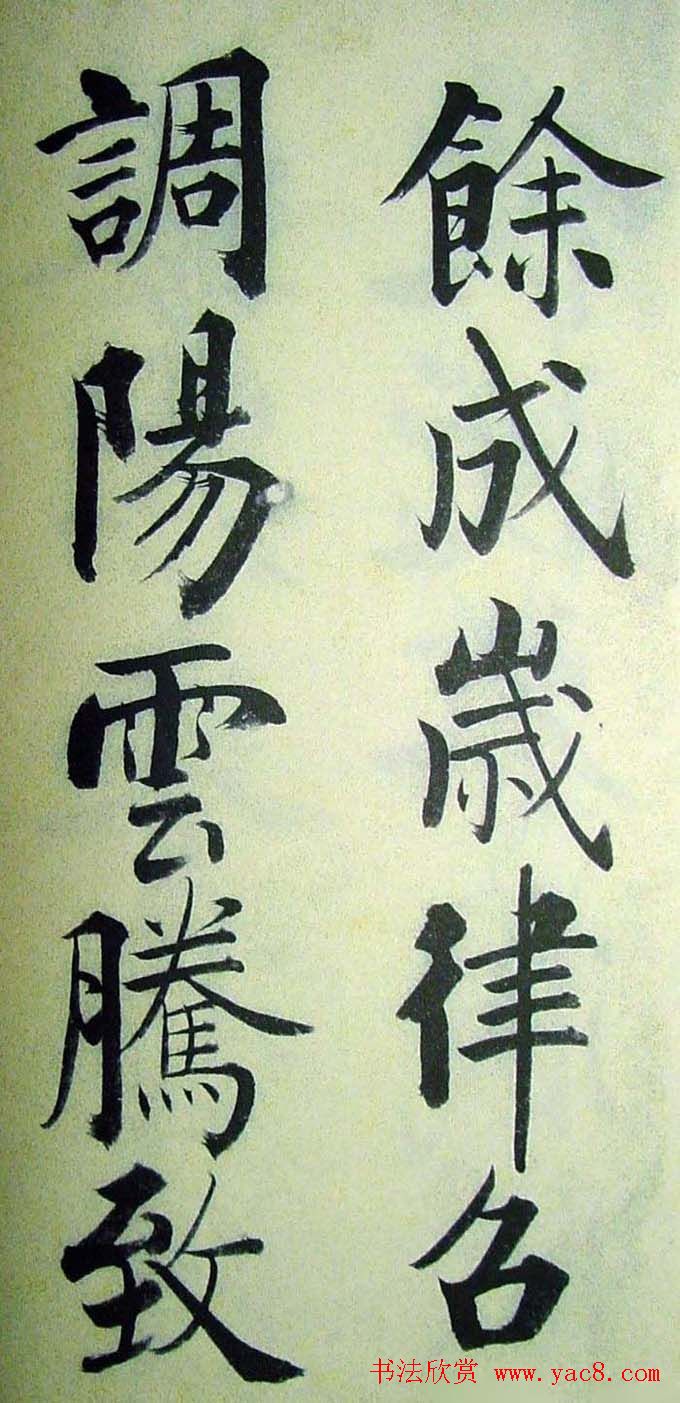 餘成歲律召
調陽雲騰致
书法欣赏 www.yac8.com